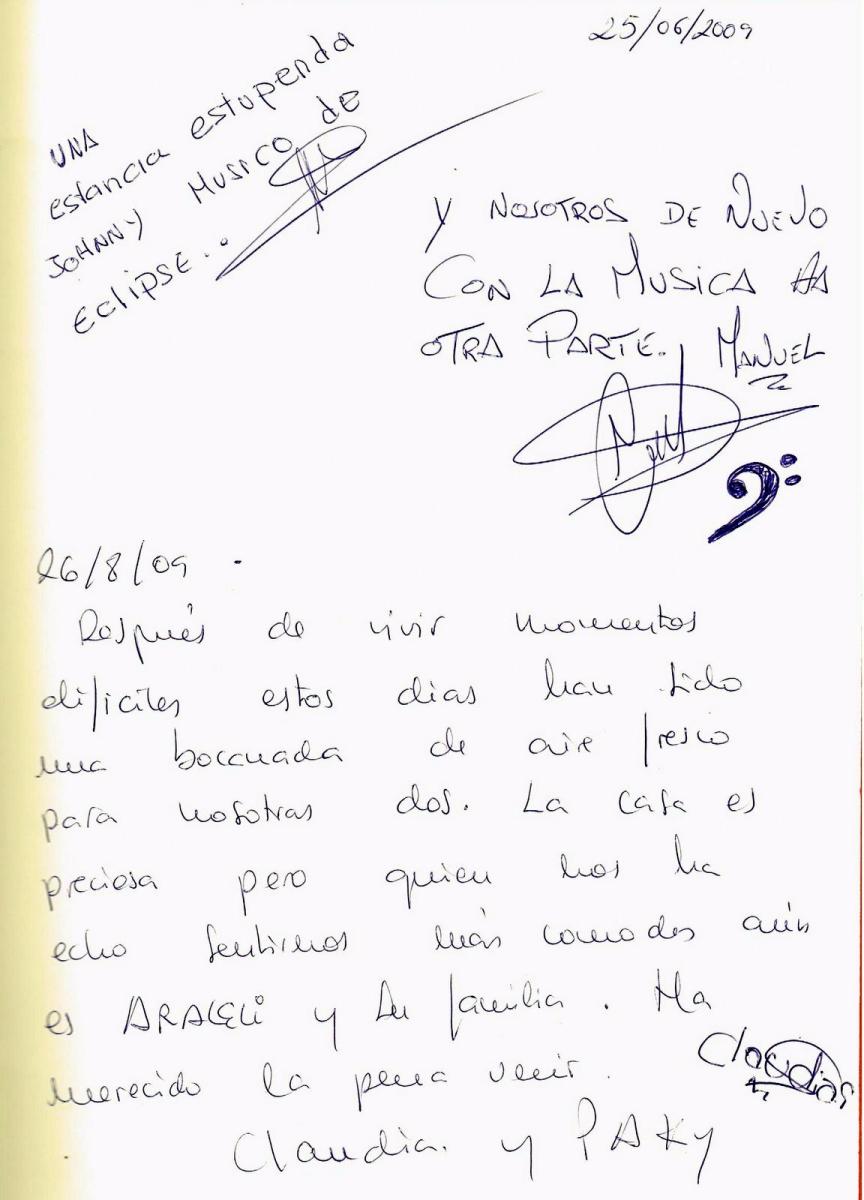 25/06/2009
UNA
estancia estupenda
JOHNNY MUSICO de
Eclipse..
Y NOSOTROS DE NUEVO
CON LA MUSICA A
OTRA PARTE. MANUEL
26/8/09
Después de vivir momentos
dificiles estos dias han sido
una boccuada de aire fresco
para nosotras dos. La casa es
preciosa pero quien nos ha
echo sentirnos más comodas aún
es ARACELI y su familia. Ha
merecido la pena venir.
Claudias
Claudia. y PAKY